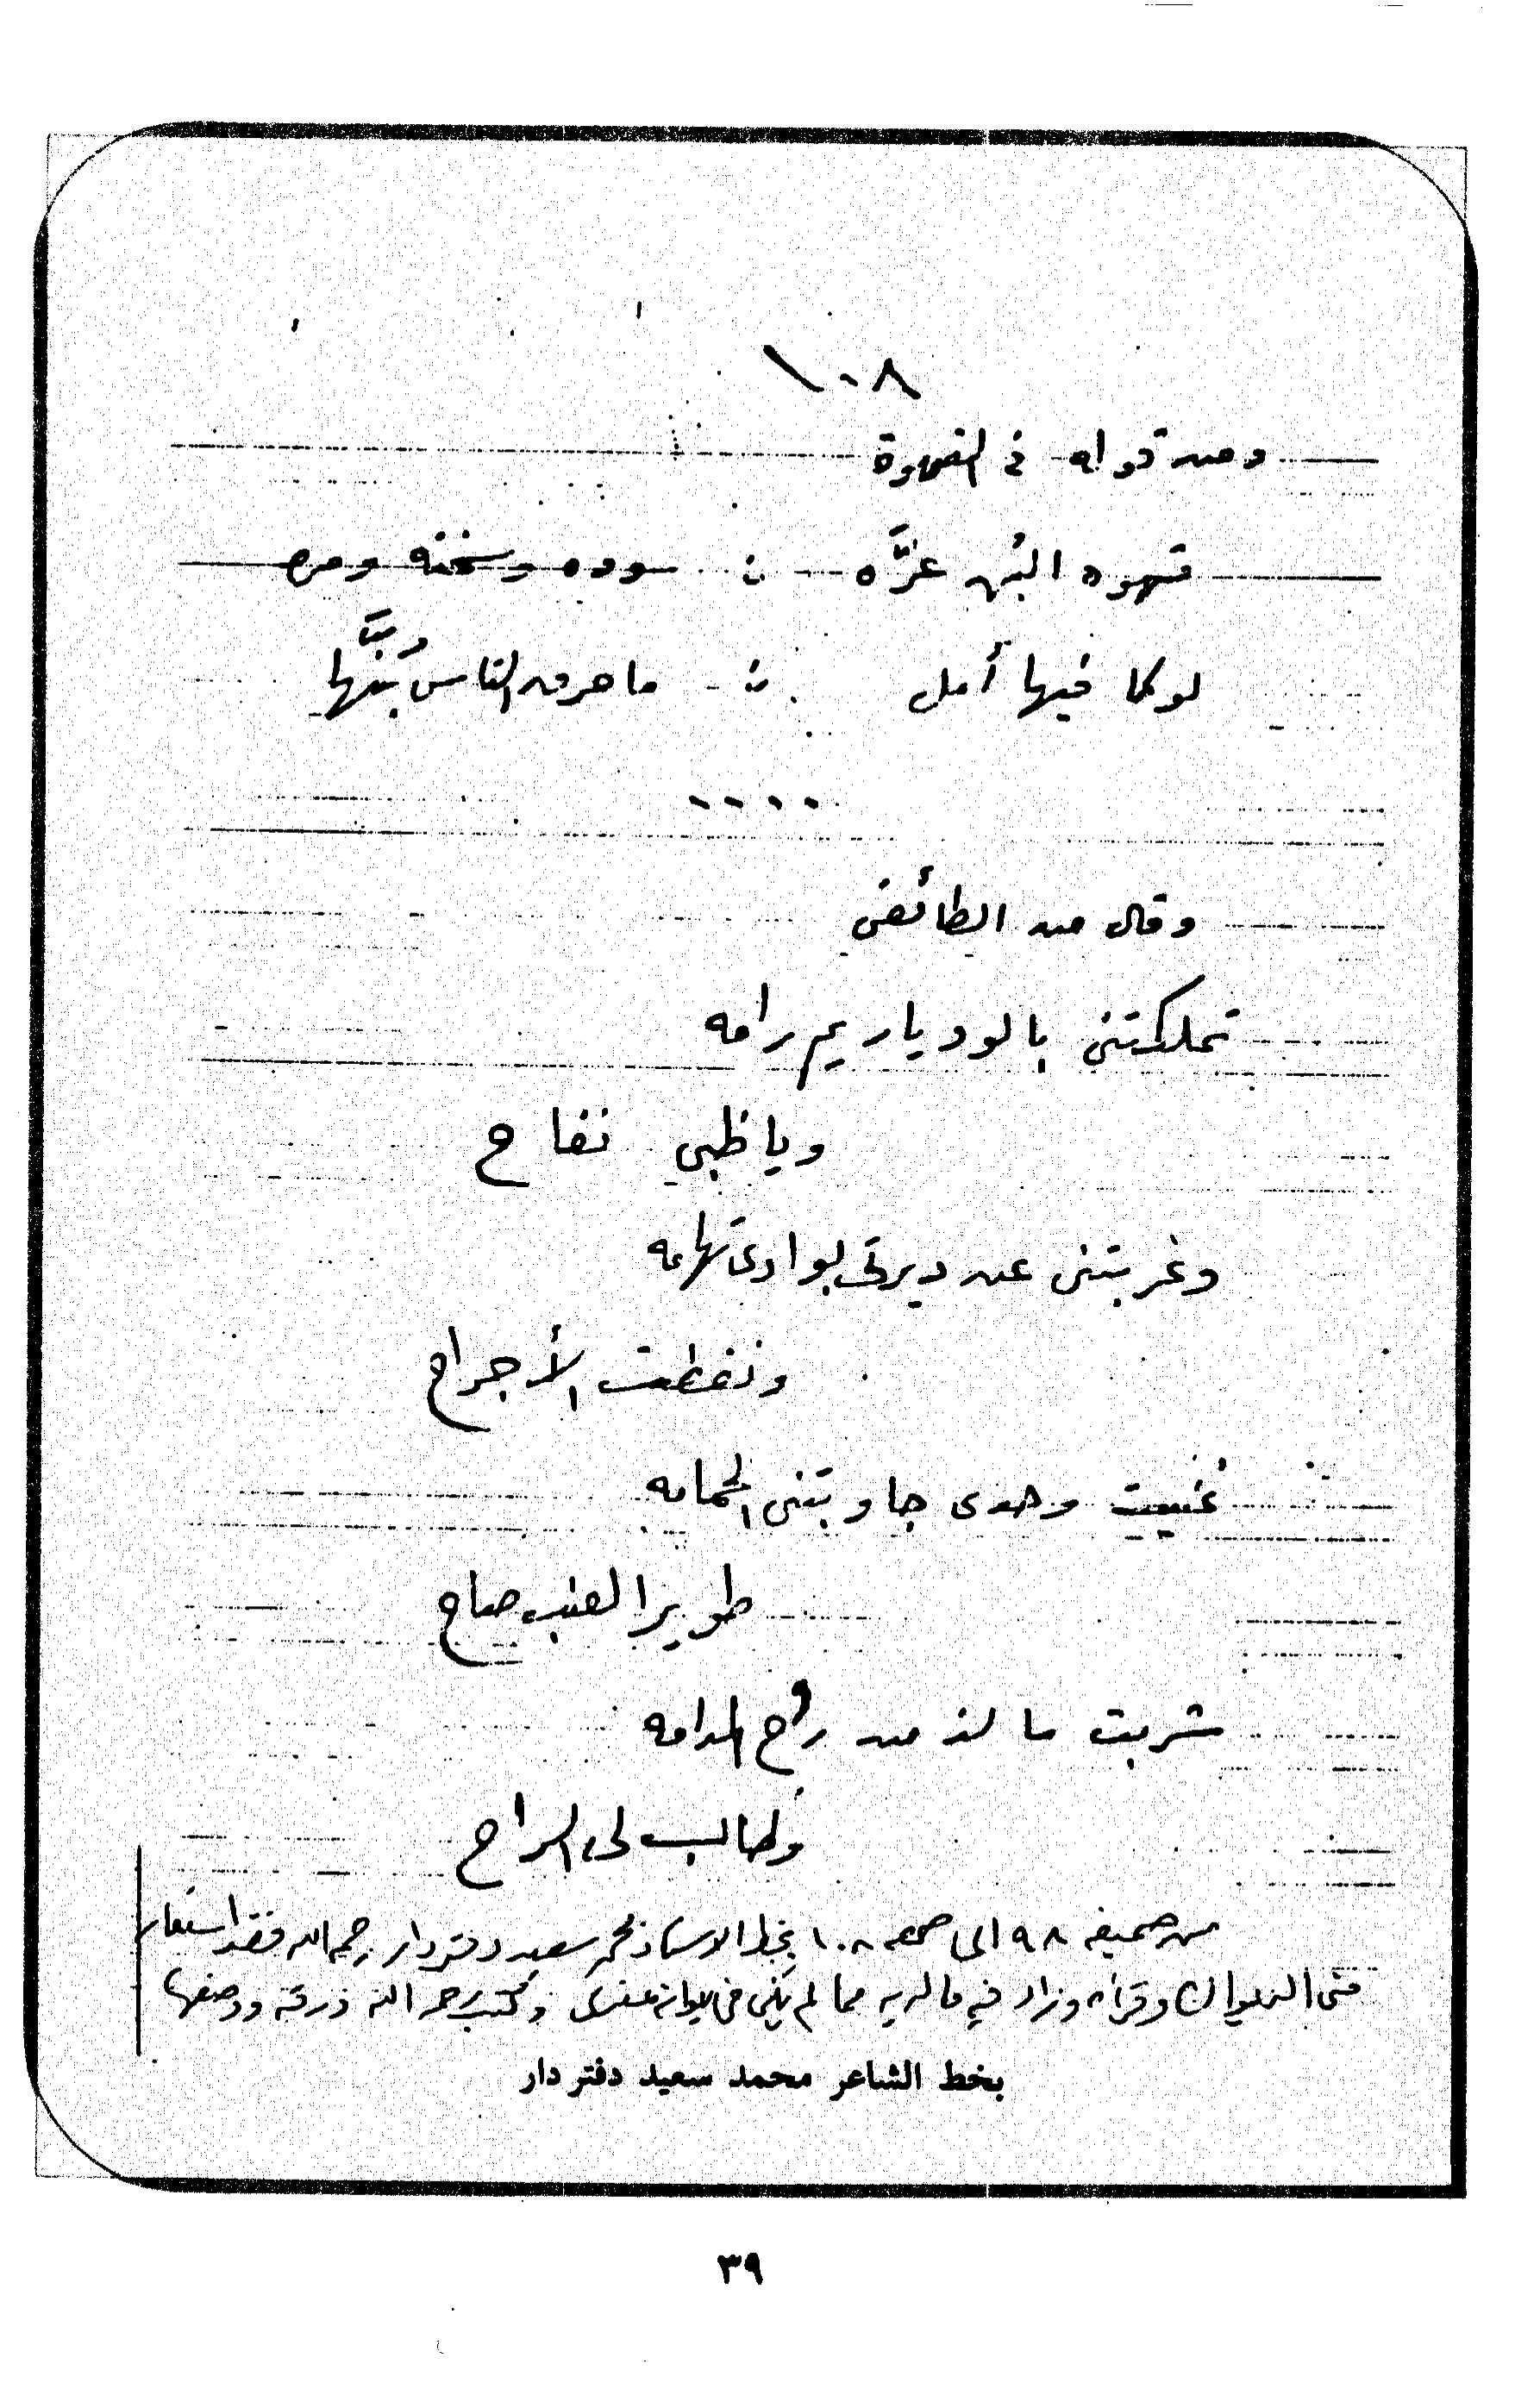 ١٠٨
ومن قوله في القهوة
قهوه البُن عزَّه ؛ سوده وسخنه ومره
لو كا فيها أمل ؛ ما حرق الناس بُنَّها
وقال من الطائفى
تملكتني بالود يا ريم رامه
ويا ظبي نفاح
وغربتنى عن ديرتى بوادى تهامه
ونفطت الأجراح
غنيت وحدى جاوبتنى الحمامه
طوير العنب صاح
شربت ما لذ من راح المدامه
وطاب لى الراح
من صحيفه ٩٨ الى صحفه ١٠٨ بخط الاستاذ محمد سعيد دفتردار رحمه الله فقد استعار
منى الديوان وقرأه وزاد فيه ما لديه مما لم يكن فى ديوانه عندى وكتب رحمه الله
بخط الشاعر محمد سعيد دفتر دار
٣٩